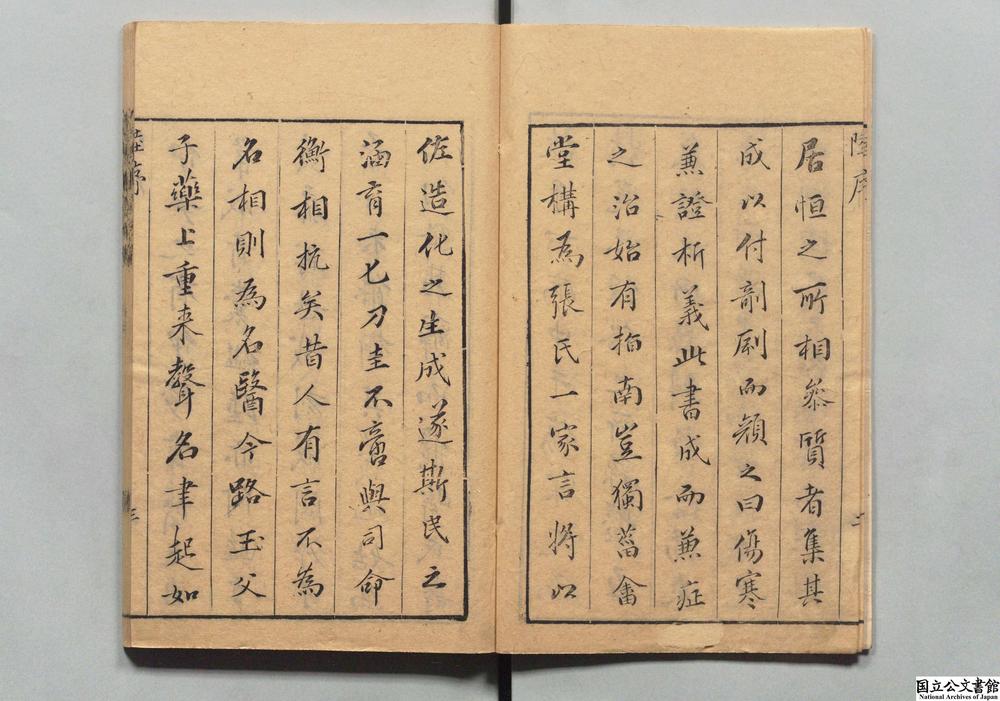 陸序
居恒之所相叅質者集其
成以付剞劂而顏之曰傷寒
兼證析義此書成而兼症
之治始有指南豈獨菑畬
堂構為張氏一家言將以
佐造化之生成遂斯民之
涵育一七刀圭不啻與司命
衡相抗矣昔人有言不為
名相則為名醫今路玉父
子藥上重来聲名聿起如
陸序
三
国立公文書館
National Archives of Japan